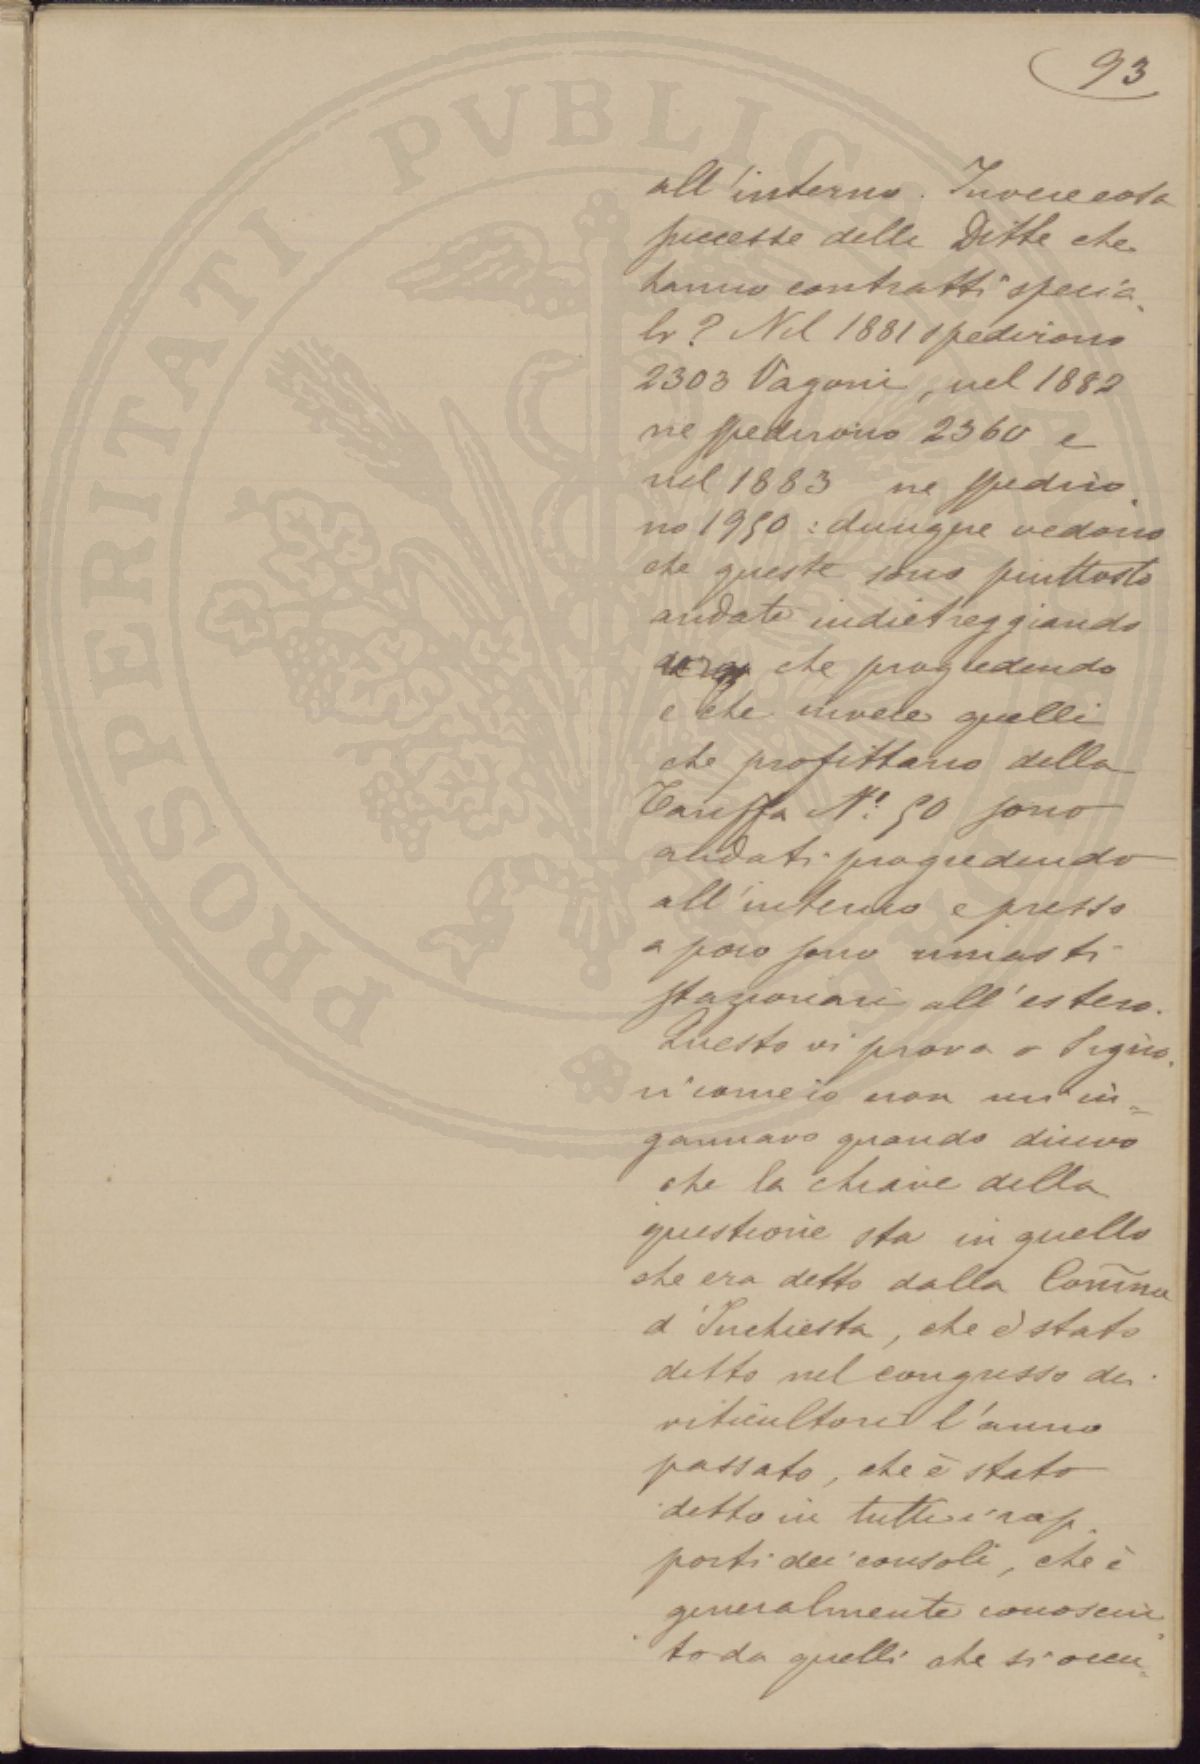 93
all'interno. Invece cosa
successe delle Ditte che
hanno contratti specia-
li? Nel 1881 spedirono
2303 Vagoni, nel 1882
ne spedirono 2360 e
nel 1883 ne spediro-
no 1950: dunque vedono
che queste sono piuttosto
andate indietreggiando
che progredendo
e che invece quelli
che profittano della
Tariffa N.° 50 sono
andati progredendo
all'interno e presso
a poco sono rimasti
stazionari all'estero.
Questo vi prova o Signo-
ri come io non m'in=
gannavo quando dicevo
che la chiave della
questione sta in quello
che era detto dalla Comm̃ne
d'Inchiesta, che è stato
detto nel congresso dei
viticultori l'anno
passato, che è stato
detto in tutti i rap-
porti dei consoli, che è
generalmente conosciu-
to da quelli che si occu-
PROSPERITATI PVBLIC